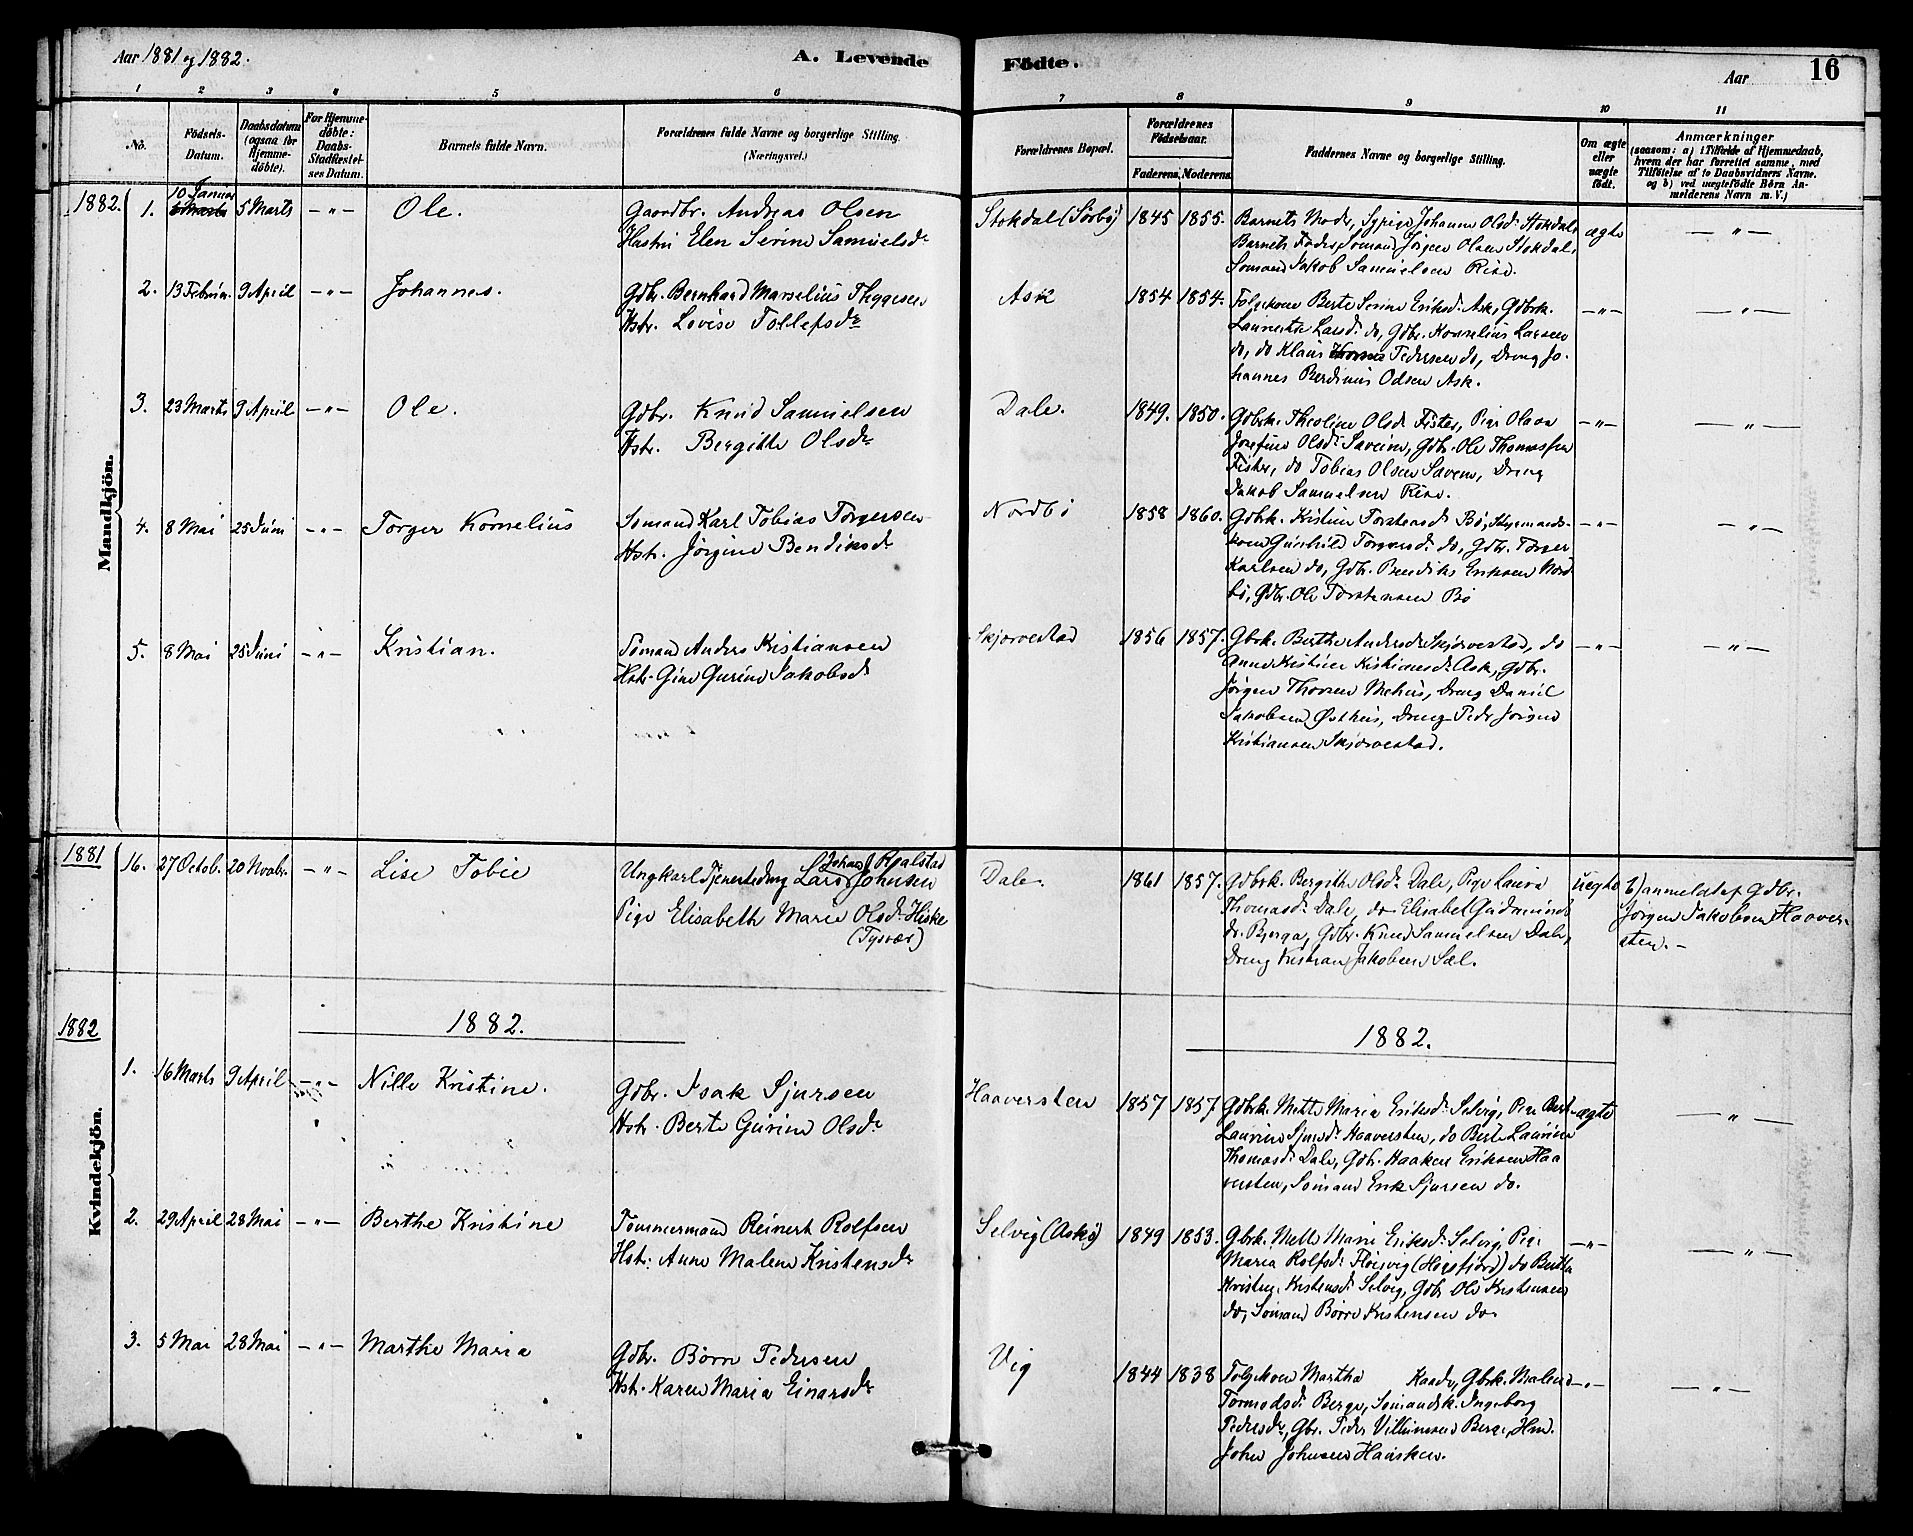 Aar 1881 og 1882.
A. Levende Födte.
Aar
16
1 2 3 4 5 6 7 8 9 10 11
No.
Födsels-Datum.
Daabsdatum (ogsaa for Hjemmedöbte).
For Hjemmedöbte: Daabs-Stadfæstelses Datum.
Barnets fulde Navn.
Forældrenes fulde Navne og borgerlige Stilling.
(Næringsvei.)
Forældrenes Bopæl.
Forældrenes Födselsaar.
Faderens. Moderens.
Faddernes Navne og borgerlige Stilling.
Om ægte eller uægte födt.
Anmærkninger
(saasom: a) i Tilfælde af Hjemmedaab,
hvem der har forrettet samme, med
Tilföielse af to Daabsvidners Navne.
og b) ved uægtefödte Börn An-
melderens Navn m. V.)
Mandkjön.
1882. 1. 10 Januar 5 Marts – " – Ole.
Gaardbr. Andreas Olsen
Hustru Elen Serine Samuelsdr
Stokdal (Sörbö) 1845 1855.
Barnets Moder, Sypige Johanne Olsdr Stokdal,
Barnets Fader, Sömand Jörgen Olsen Stokdal,
Sömand Jakob Samuelsen Risø.
ægte – " –
2. 13 Februar. 9 April – " – Johannes.
Gdbr. Bernhard Marselius Thygesen
Hstr. Lovise Tollefsdr
Ask 1854 1854.
Folgekone Berte Serine Eriksdr Ask, Gdbrk.
Laurentse Larsdr do, Gdbr. Kornelius Larsen
do, do Klaus Pedersen do, Dreng Jo-
hannes Berdinus Odsen Ask.
– " – – " –
3. 23 Marts 9 April – " – Ole.
Gdbr. Knud Samuelsen
Hstr. Bergitte Olsdr
Dale. 1849. 1850.
Gdbrk. Theoline Olsdr Fister, Pige Olava
Josefine Olsdr Saveim, Gdbr. Ole Thomassen
Fister, do Tobias Olsen Savem, Dreng
Jakob Samuelsen Risø.
– " – – " –
4. 8 Mai 25 Juni – " – Torger Kornelius
Sömand Karl Tobias Torgersen
Hstr. Jörgine Bendiksdr
Nordbö 1858 1860.
Gdbrk. Kristine Torstensdr Bö, Styrmands-
kone Gunhild Torgersdr do, Gdbr. Torger
Karlsen do, Gdbr. Bendiks Eriksen Nord-
bö, Gdbr. Ole Torstensen Bö
– " – – " –
5. 8 Mai 25 Juni – " – Kristian.
Sömand Anders Kristiansen
Hstr. Gine Gurine Jakobsdr
Skjørvestad 1856 1857.
Gbrk. Berthe Andersdr Skjørvestad, do
Anne Kristine Kistiansdr Ask, Gdbr.
Jörgen Thorsen Mehus, Dreng Daniel
Jakobsen Østhus, Dreng Peder Jörgen
Kristiansen Skjørvestad.
– " – – " –
1881 16. 27 Octob. 20 Novbr. – " – Lise Tobie
Ungkarl Tjenestedreng Lars Johan Johnsen Rjalstad
Pige Elisabeth Marie Olsdr Hiske
(Tysvær)
Dale. 1861 1857.
Gdbrk. Bergithe Olsdr Dale, Pige Laura
Thomasdr Dale, do Elisabet Gudmunds-
dr. Bjerga, Gdbr. Knud Samuelsen Dale,
Dreng Kristian Jakobsen Sæl.
uegte b) anmeldt af Gdbr.
Jörgen Jakobsen Haaver-
sten. –
Kvindekjön.
1882
1882.
1882.
1. 16 Marts 9 April – " – Nille Kristine.
Gdbr. Isak Sjursen
Hstr. Berte Gurine Olsdr
Haaversten 1857 1857
Gdbrk. Mette Maria Eriksdr Selvig, Pige Bert-
Laurine Sjursdr Haaversten, do Berte Laurine
Thomasdr Dale, Gdbr. Haaken Eriksen Haa-
versten, Sömand Erik Sjursen do.
ægte – " –
2. 29 April 28 Mai – " – Berthe Kristine
Tømmermand Reinert Rolfsen
Hstr. Anne Malene Kristensdr
Selvig (Askø) 1849 1853.
Gbrk. Mette Marie Eriksdr Selvig, Pige
Maria Rolfsdr Fløisvig (Høgsfjord) do Berthe
Kristine Kristensdr Selvig, Gdbr. Ole Kristensen
do, Sömand Börre Kristensen do
– " – – " –
3. 5 Mai 28 Mai – " – Marthe Maria
Gdbr. Børn Pedersen
Hstr. Karen Maria Einarsdr
Vig 1844 1838
Folgekone Martha Kaade, Gbrk. Malene
Tormodsdr Berge, Sömandsk. Ingeborg
Pedersdr, Gbr. Peder Villumsen Berge, Hm.
John Johnsen Hausken.
– " – – " –